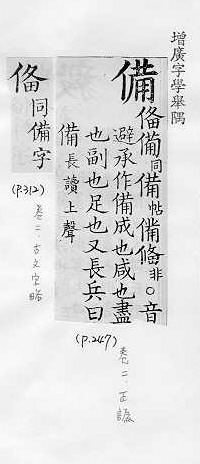 增廣字學舉隅
備
同備帖
非○音
避承作備成也咸也盡
也副也足也又長兵曰
備長讀上聲
(p.247)
卷二.正譌
俻
同備字
(P.312)
卷二.古文字略